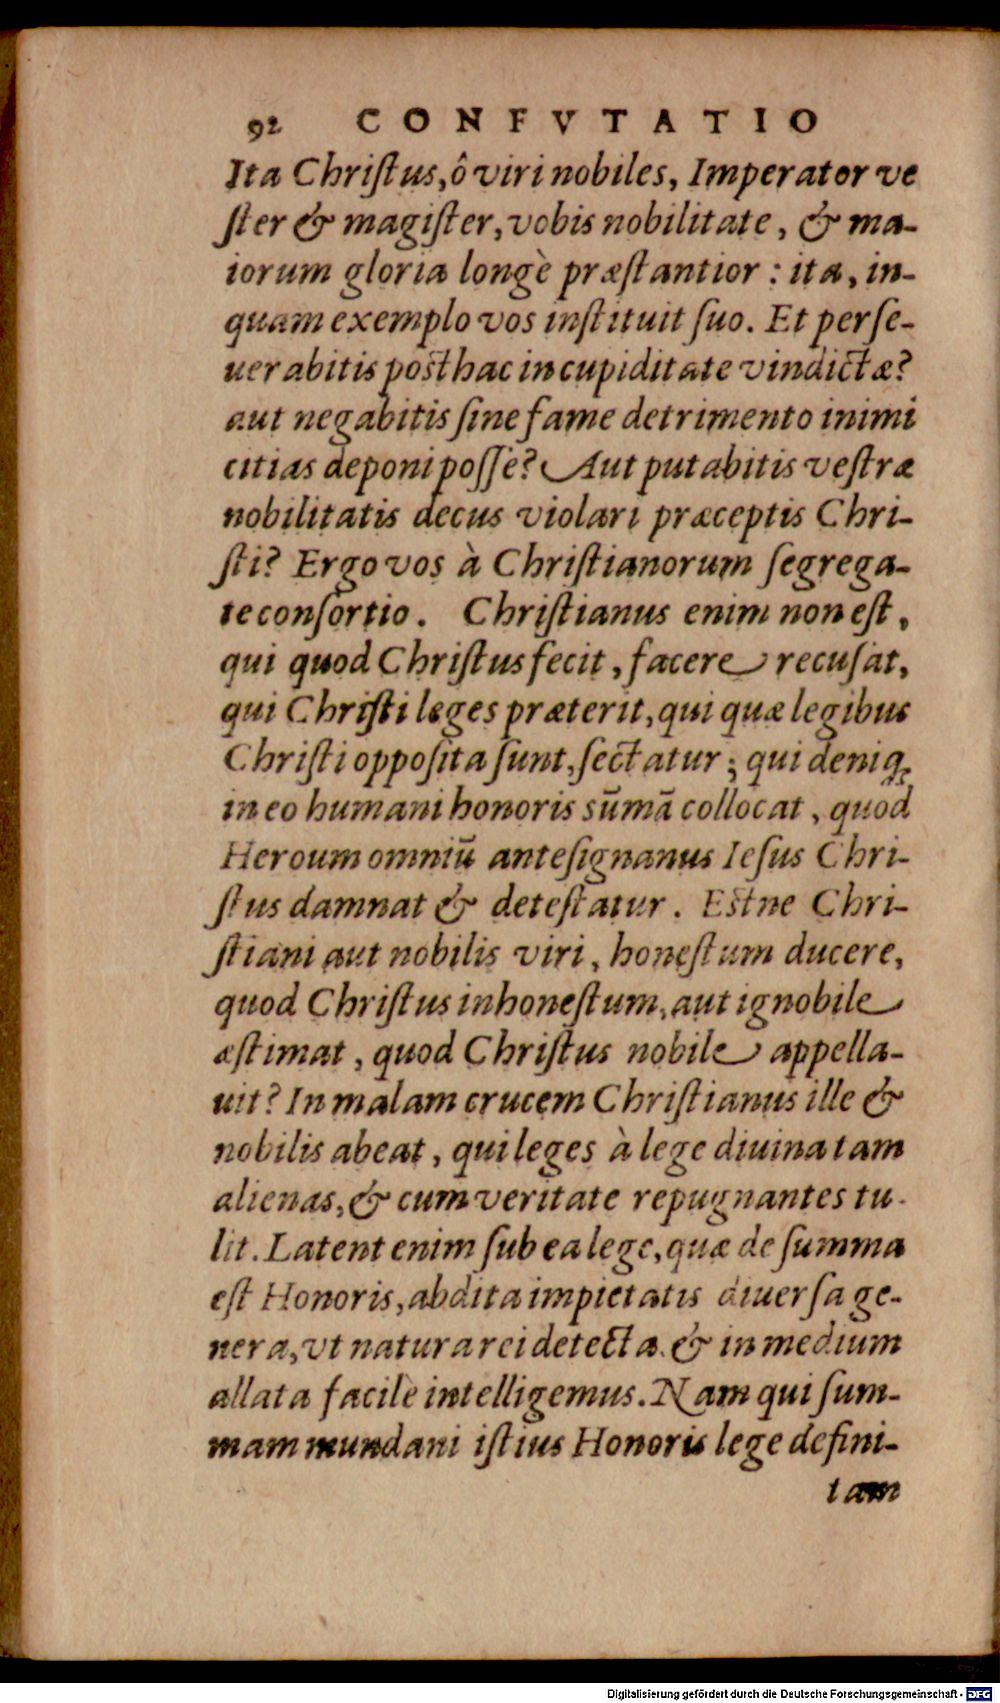 92 CONFVTATIO
Ita Chriſtus, ô viri nobiles, Imperator ve
ſter & magiſter, vobis nobilitate, & ma-
iorum gloria longè præſtantior : ita, in-
quam exemplo vos inſtituit ſuo. Et perſe-
uerabitis poſthac in cupiditate vindictæ?
aut negabitis ſine fame detrimento inimi
citias deponi poſſe? Aut putabitis veſtræ
nobilitatis decus violari præceptis Chri-
ſti? Ergo vos à Chriſtianorum ſegrega-
te conſortio. Chriſtianus enim non eſt,
qui quod Chriſtus fecit, facere recuſat,
qui Chriſti leges præterit, qui quæ legibus
Chriſti oppoſita ſunt, ſectatur; qui deniq;
in eo humani honoris sūmā collocat, quod
Heroum omniū anteſignanus Ieſus Chri-
ſtus damnat & deteſtatur. Eſtne Chri-
ſtiani aut nobilis viri, honeſtum ducere,
quod Chriſtus inhoneſtum, aut ignobile
æſtimat, quod Chriſtus nobile appella-
uit? In malam crucem Chriſtianus ille &
nobilis abeat, qui leges à lege diuina tam
alienas, & cum veritate repugnantes tu-
lit. Latent enim ſub ea lege, quæ de ſumma
eſt Honoris, abdita impietatis diuerſa ge-
nera, vt natura rei detecta & in medium
allata facile intelligemus. Nam qui ſum-
mam mundani iſtius Honoris lege defini-
tam
Digitalisierung gefördert durch die Deutsche Forschungsgemeinschaft - DFG